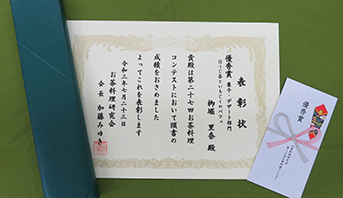 表彰状
優秀賞 菓子・デザート部門
ほうじ茶といちじくのパフェ
栁堀 里奈 殿
貴殿は第二十七回お茶料理
コンテストにおいて頭書の
成績をおさめました
よってこれを表彰します
令和二年七月二十三日
お茶料理研究会
会長 加藤みゆき
優秀賞